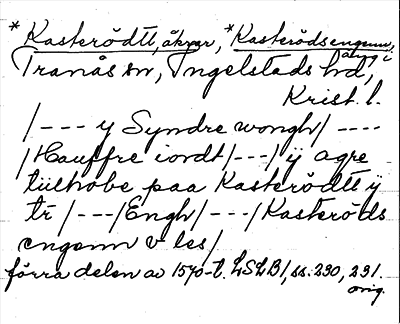 *Kasterödtt, åkrar, *Kasterödsengenn,
äng i
Tranås sn, Ingelstads hd,
Krist. l.
/--- y Syndre wongh/ ----
/Hauffre iordt/---/ ÿ agre
tiilhobe paa Kasterödtt ÿ
tr/---/Engh/---/Kasteröds
engenn v les/
förra delen av 1570-t. LSLB1, ss. 230, 231.
orig.